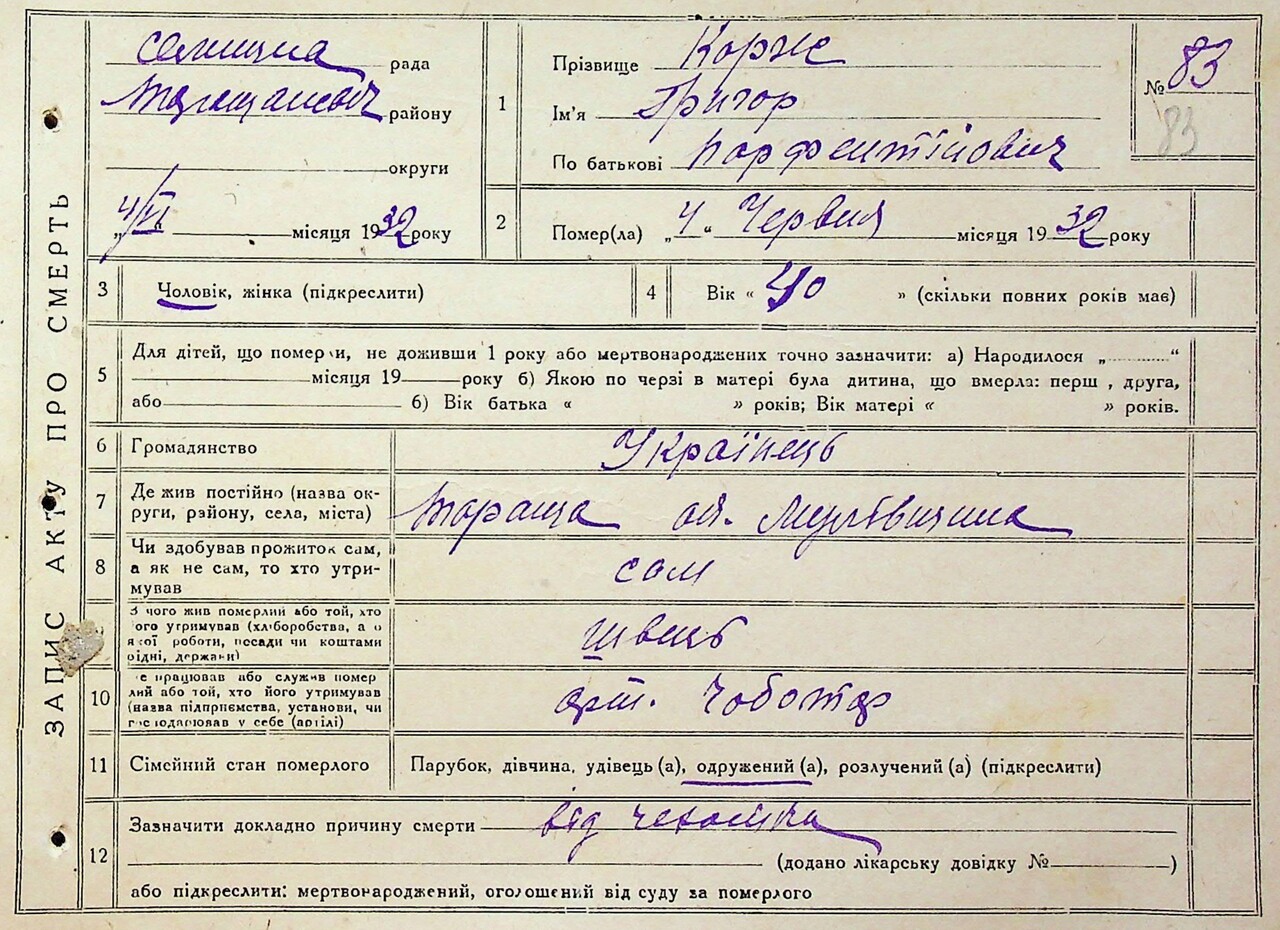 ЗАПИС АКТУ ПРО СМЕРТЬ
селищна рада
Таращанськ району
округи
„4/VI“ місяця 1932 року
1
Прізвище Корж
Ім'я Григор
По батькові Парфентійович
№ 83
83
2
Помер(ла) „4“ Червня місяця 1932 року
3 Чоловік, жінка (підкреслити)
4 Вік «40» (скільки повних років має)
5
Для дітей, що померли, не доживши 1 року або мертвонароджених точно зазначити: а) Народилося „..........“
місяця 19 року б) Якою по черзі в матері була дитина, що вмерла: перш , друга,
або б) Вік батька « » років; Вік матері « » років.
6 Громадянство Українець
7 Де жив постійно (назва ок-
руги, району, села, міста) Тараща
8 Чи здобував прожиток сам,
а як не сам, то хто утри-
мував сам
З чого жив померлий або той, хто
ого утримував (хліборобства, а о
якої роботи, посади чи коштами
рідні, держави) швець
10 е працював або служив помер
лий або той, хто його утримував
(назва підприємства, установи, чи
господарював у себе (вдтілі) арт. Чоботар
11 Сімейний стан померлого Парубок, дівчина, удівець (а), одружений (а), розлучений (а) (підкреслити)
12
Зазначити докладно причину смерти від
(додано лікарську довідку № )
або підкреслити: мертвонароджений, оголошений від суду за померлого